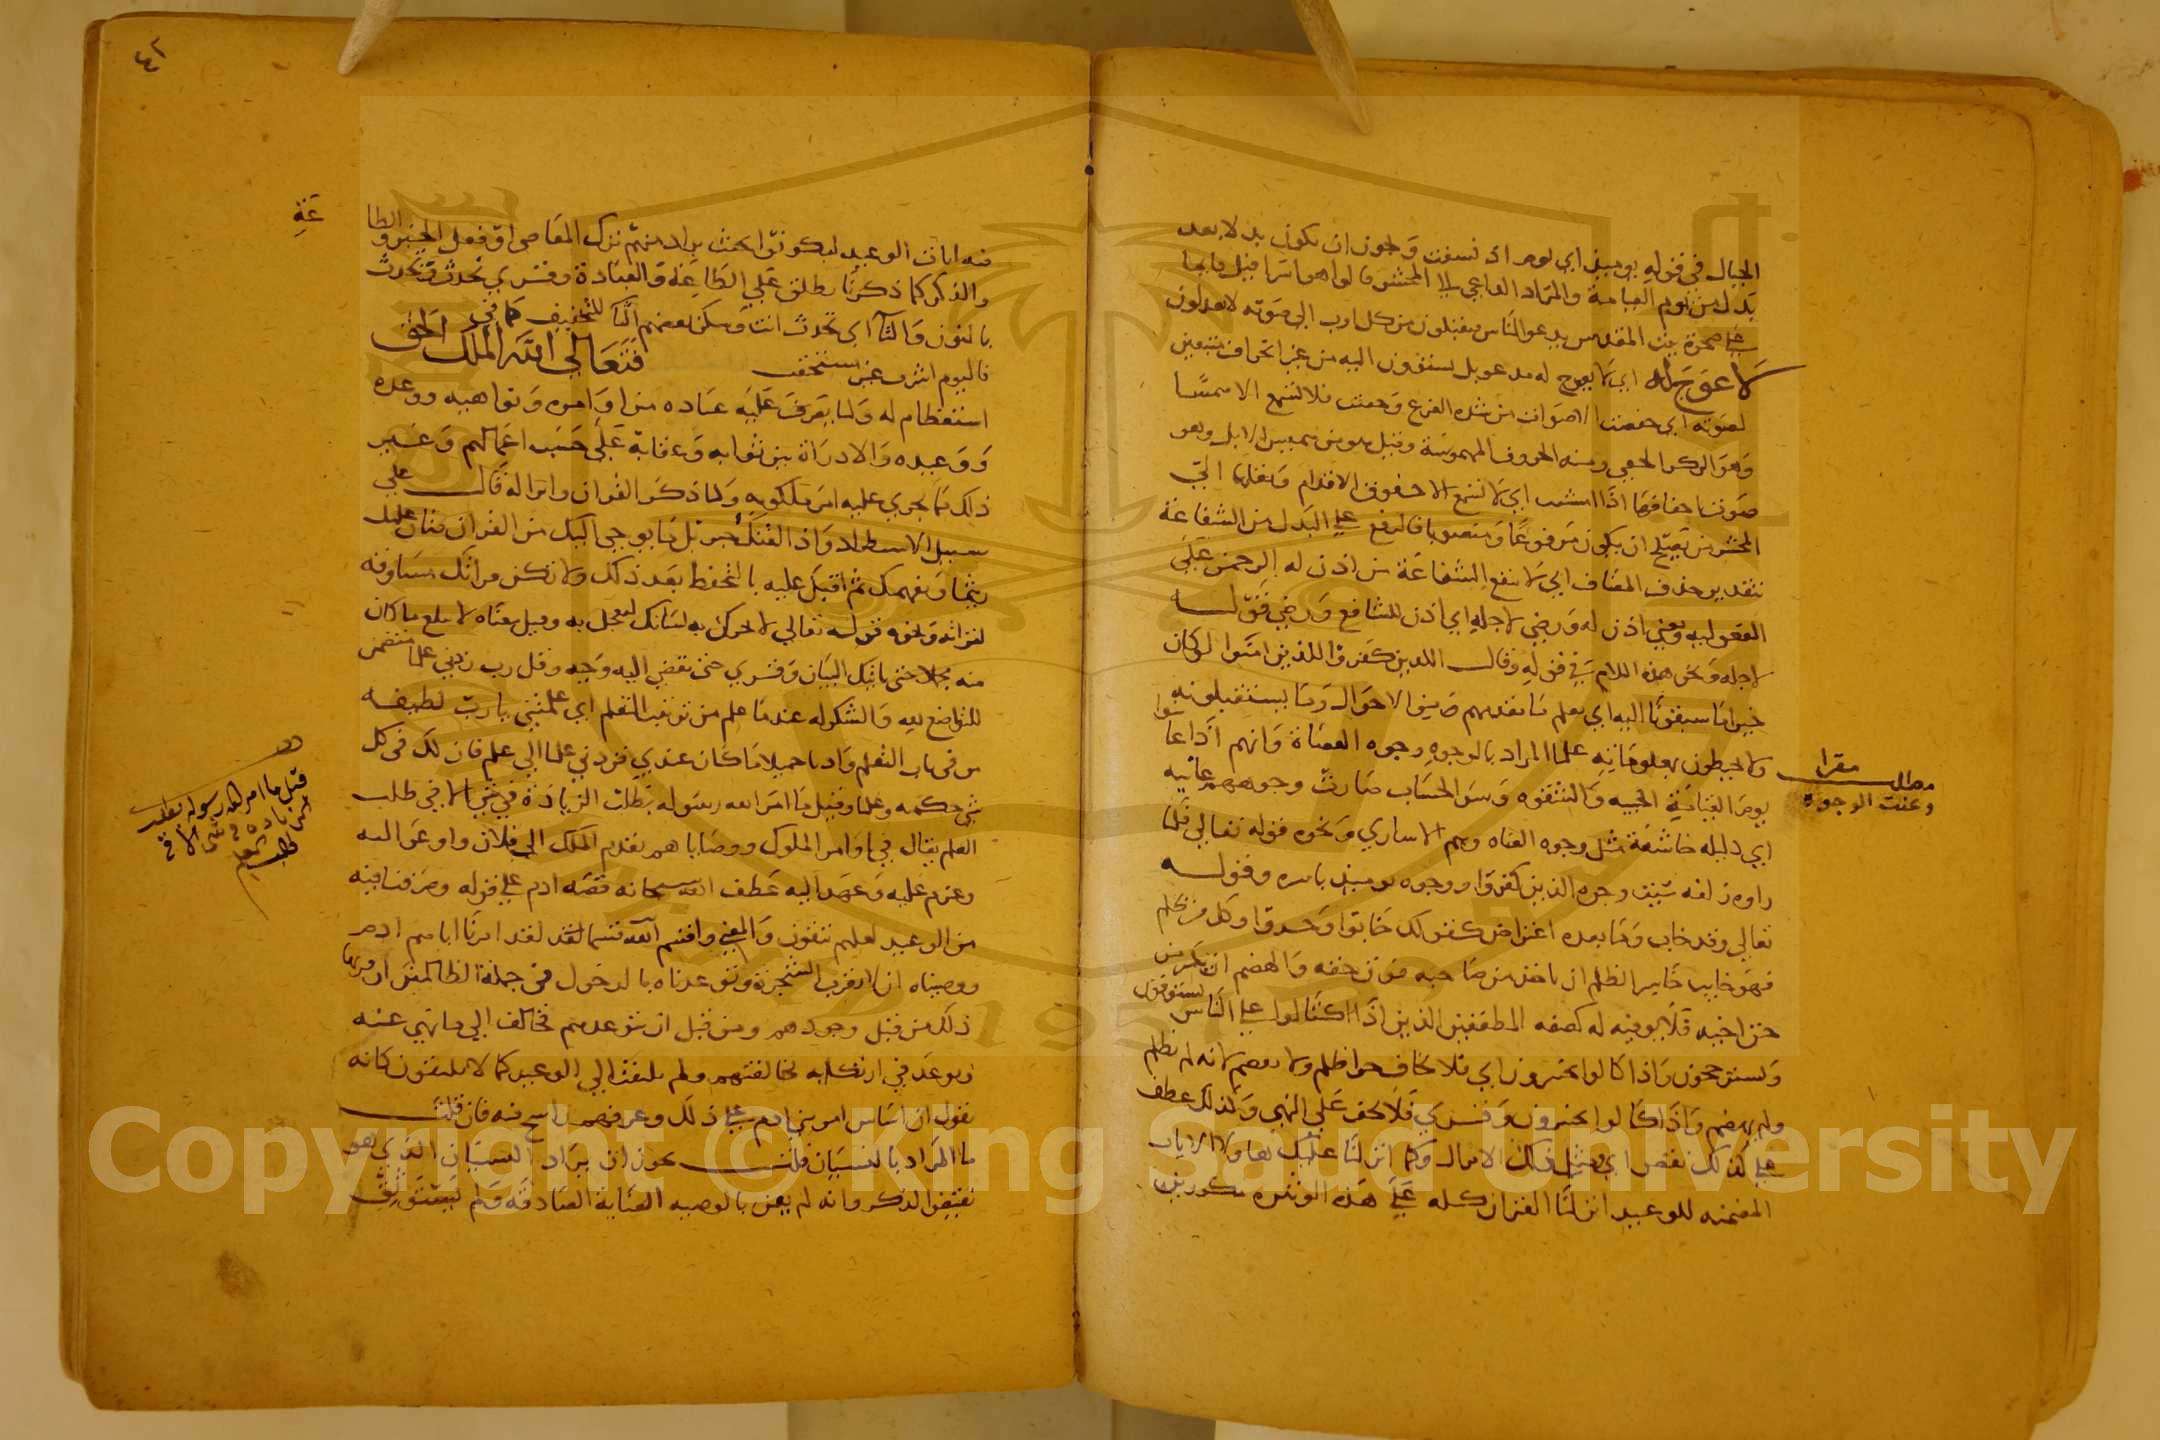 الجبال في قوله يومئذ اي يوم اذ نسفت ويجوز ان يكون بدلا بعد
بدل من يوم القيامة والمراد الداعي الى المحشر قالوا هو اسرافيل قايما
على صخرة بيت المقدس يدعو الناس فيقبلون من كل اوب الى صوته لا يعدلون
لا عوج له اي لا يعوج له مدعو بل يستوون اليه من غير انحراف متبعين
لصوته اي خفضت الاصوات من شدة الفزع وخفتت فلا تسمع الا همسا
وهو الركز الخفي ومنه الحروف المهموسة وقيل هو من همس الابل وهو
صوت اخفافها اذا مشت اي لا تسمع الا خفق الاقدام ونقلها الى
المحشر من يصلح ان يكون مرفوعا ومنصوبا فالرفع على البدل من الشفاعة
بتقدير حذف المضاف اي لا تنفع الشفاعة من اذن له الرحمن على
المفعولية ومعنى اذن له ورضي لاجله اي اذن للشافع ورضي قوله
لاجله ونحو هذه اللام في قوله وقال الذين كفروا للذين امنوا لو كان
خيرا ما سبقونا اليه اي يعلم ما تقدمهم من الاحوال وما يستقبلونه
ولا يحيطون بمعلوماته علما المراد بالوجوه وجوه العصاة وانهم اذا عاينوا
يوم القيامة الخيبة والشقوة وسو الحساب صارت وجوههم عانية
اي ذليلة خاشعة مثل وجوه العناه وهم الاسارى ونحوه قوله تعالى فلما
راوه زلفة سيئت وجوه الذين كفروا ووجوه يومئذ باسره وقوله
تعالى وقد خاب وما بعده اعتراض كقولك خابوا وخسروا وكل من ظلم
فهو خايب خاسر الظلم ان ياخذ من صاحبه فوق حقه والهضم ان يكسر من
حق اخيه فلا يوفيه له كصفه المطففين الذين اذا اكتالوا على الناس يستوفون
ويسترجحون واذا كالوا يخسرون اي فلا يخاف جزا ظلم ولا هضم لانه لم يظلم
ولم يهضم واذا كالوا يخسرون وقري فلا يخف على النهي وكذلك عطف
على كذلك نقص اي ومثل ذلك الانزال وكما انزلنا عليك هاولا الايات
المضمنه للوعيد انزلنا القران كله على هذه الوتيره مكررين
مطلب مقرا
وعنت الوجوه
٤٢
فيه ايات الوعيد ليكونوا بحيث يراد منهم ترك المعاصي او فعل الخير والطا
عة
والذكر كما ذكرنا يطلق على الطاعة والعبادة وقري نحدث وتحدث
بالنون والتا اي تحدث انت وسكن بعضهم الثا للتخفيف كما في
فاليوم اشرب غير مستحقب فتعالى الله الملك الحق
استعظام له ولما يصرف عليه عباده من اوامره ونواهيه ووعده
ووعيده والادارة بين ثوابه وعقابه على حسب اعمالهم وغير
ذلك مما يجري عليه امر ملكوته ولما ذكر القران وانزاله قال على
سبيل الاستطراد واذا لقنك جبريل ما يوحى اليك من القران فتان عليك
ريثما يفهمك ثم اقبل عليه بالتحفظ بعد ذلك ولا تكن قراتك مساوقة
لقراته ونحوه قوله تعالى لا تحرك به لسانك لتعجل به وقيل معناه لا تبلغ ما كان
منه مجملا حتى ياتيك البيان وقري حتى نقضي اليه وحيه وقل رب زدني علما متضمن
للتواضع لله والشكر له عندما علم من ترتيب التعلم اي علمتني يا رب لطيفه
من في باب التعلم وادبا جميلا ما كان عندي فزدني علما الى علم فان لك في كل
شي حكمه وعلما وقيل ما امر الله رسوله بطلب الزيادة في شي الا في طلب
العلم يقال في اوامر الملوك ووصاياهم تقدم الملك الى فلان واوعز اليه
وعزم عليه وعهد اليه عطف الله سبحانه قصه ادم على قوله وصرفنا فيه
من الوعيد لعلهم يتقون والمعنى واقسم الله قسما لقد امرنا اباهم ادم
ووصيناه ان لا يقرب الشجرة وتوعدناه بالدخول في جملة الظالمين ان قربها
ذلك من قبل وجودهم ومن قبل ان نتوعدهم فخالف الى ما نهي عنه
وتوعد في ارتكابه مخالفتهم ولم يلتفت الى الوعيد كما لا يلتفتون كانه
يقول ان اساس امر بني ادم على ذلك وعرقهم راسخ فيه فان قلت
ما المراد بالنسيان قلت يجوز ان يراد النسيان الذي هو
نقيض الذكر وانه لم يعن بالوصيه العناية الصادقه ولم يستوثق
قيل ما امر الله رسوله بطلب
الزيادة في شي الا في
طلب العلم
Copyright © King Saud University
1957